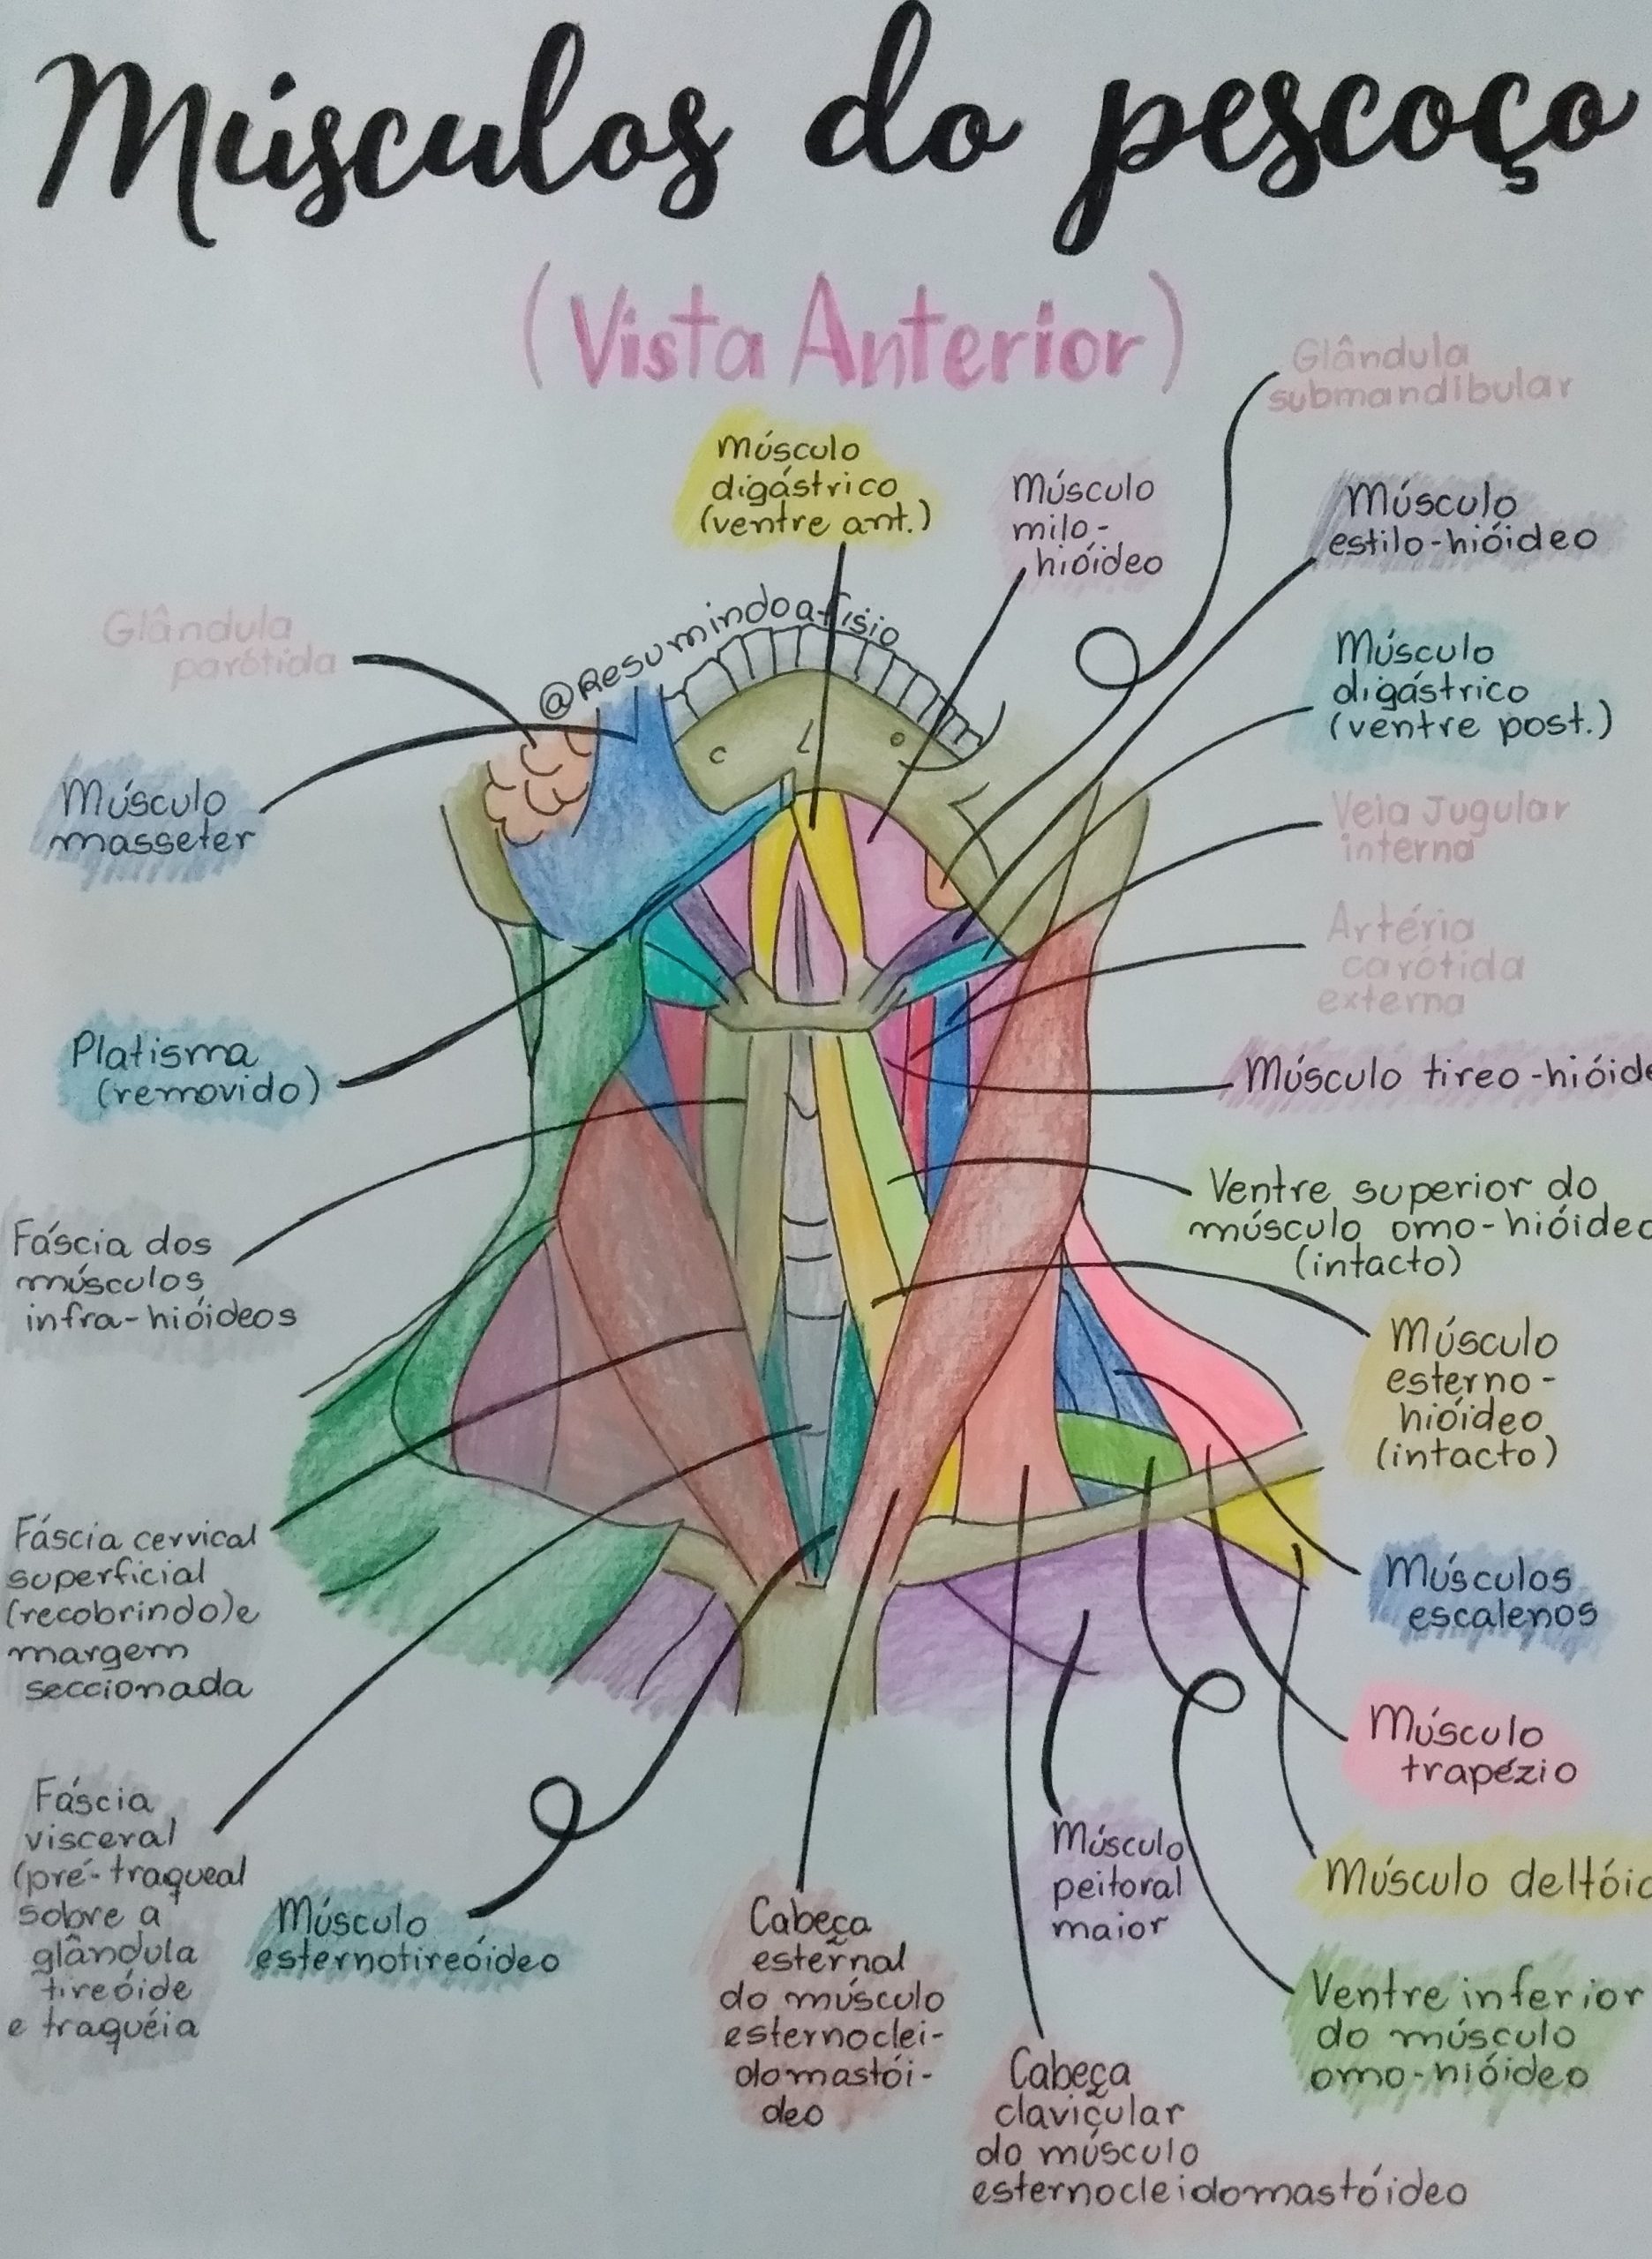 Músculos do pescoço
(Vista Anterior)
Glândula
submandibular
Músculo
digástrico
(ventre ant.)
Músculo
milo-
hióideo
Músculo
estilo-hióideo
@Resumindoafisio
Glândula
parótida
Músculo
digástrico
(ventre post.)
Músculo
masseter
Veia Jugular
interna
Artéria
carótida
externa
Platisma
(removido)
Músculo tireo-hióide
Ventre superior do
músculo omo-hióideo
(intacto)
Fáscia dos
músculos
infra-hióideos
Músculo
esterno-
hióideo
(intacto)
Fáscia cervical
superficial
(recobrindo)e
margem
seccionada
Músculos
escalenos
Músculo
trapézio
Fáscia
visceral
(pré-traqueal
sobre a
glândula
tireóide
e traquéia
Músculo
esternotireóideo
Cabeça
esternal
do músculo
esternoclei-
domastói-
deo
Músculo
peitoral
maior
Músculo deltóid
Ventre inferior
do músculo
omo-hióideo
Cabeça
clavicular
do músculo
esternocleidomastóideo